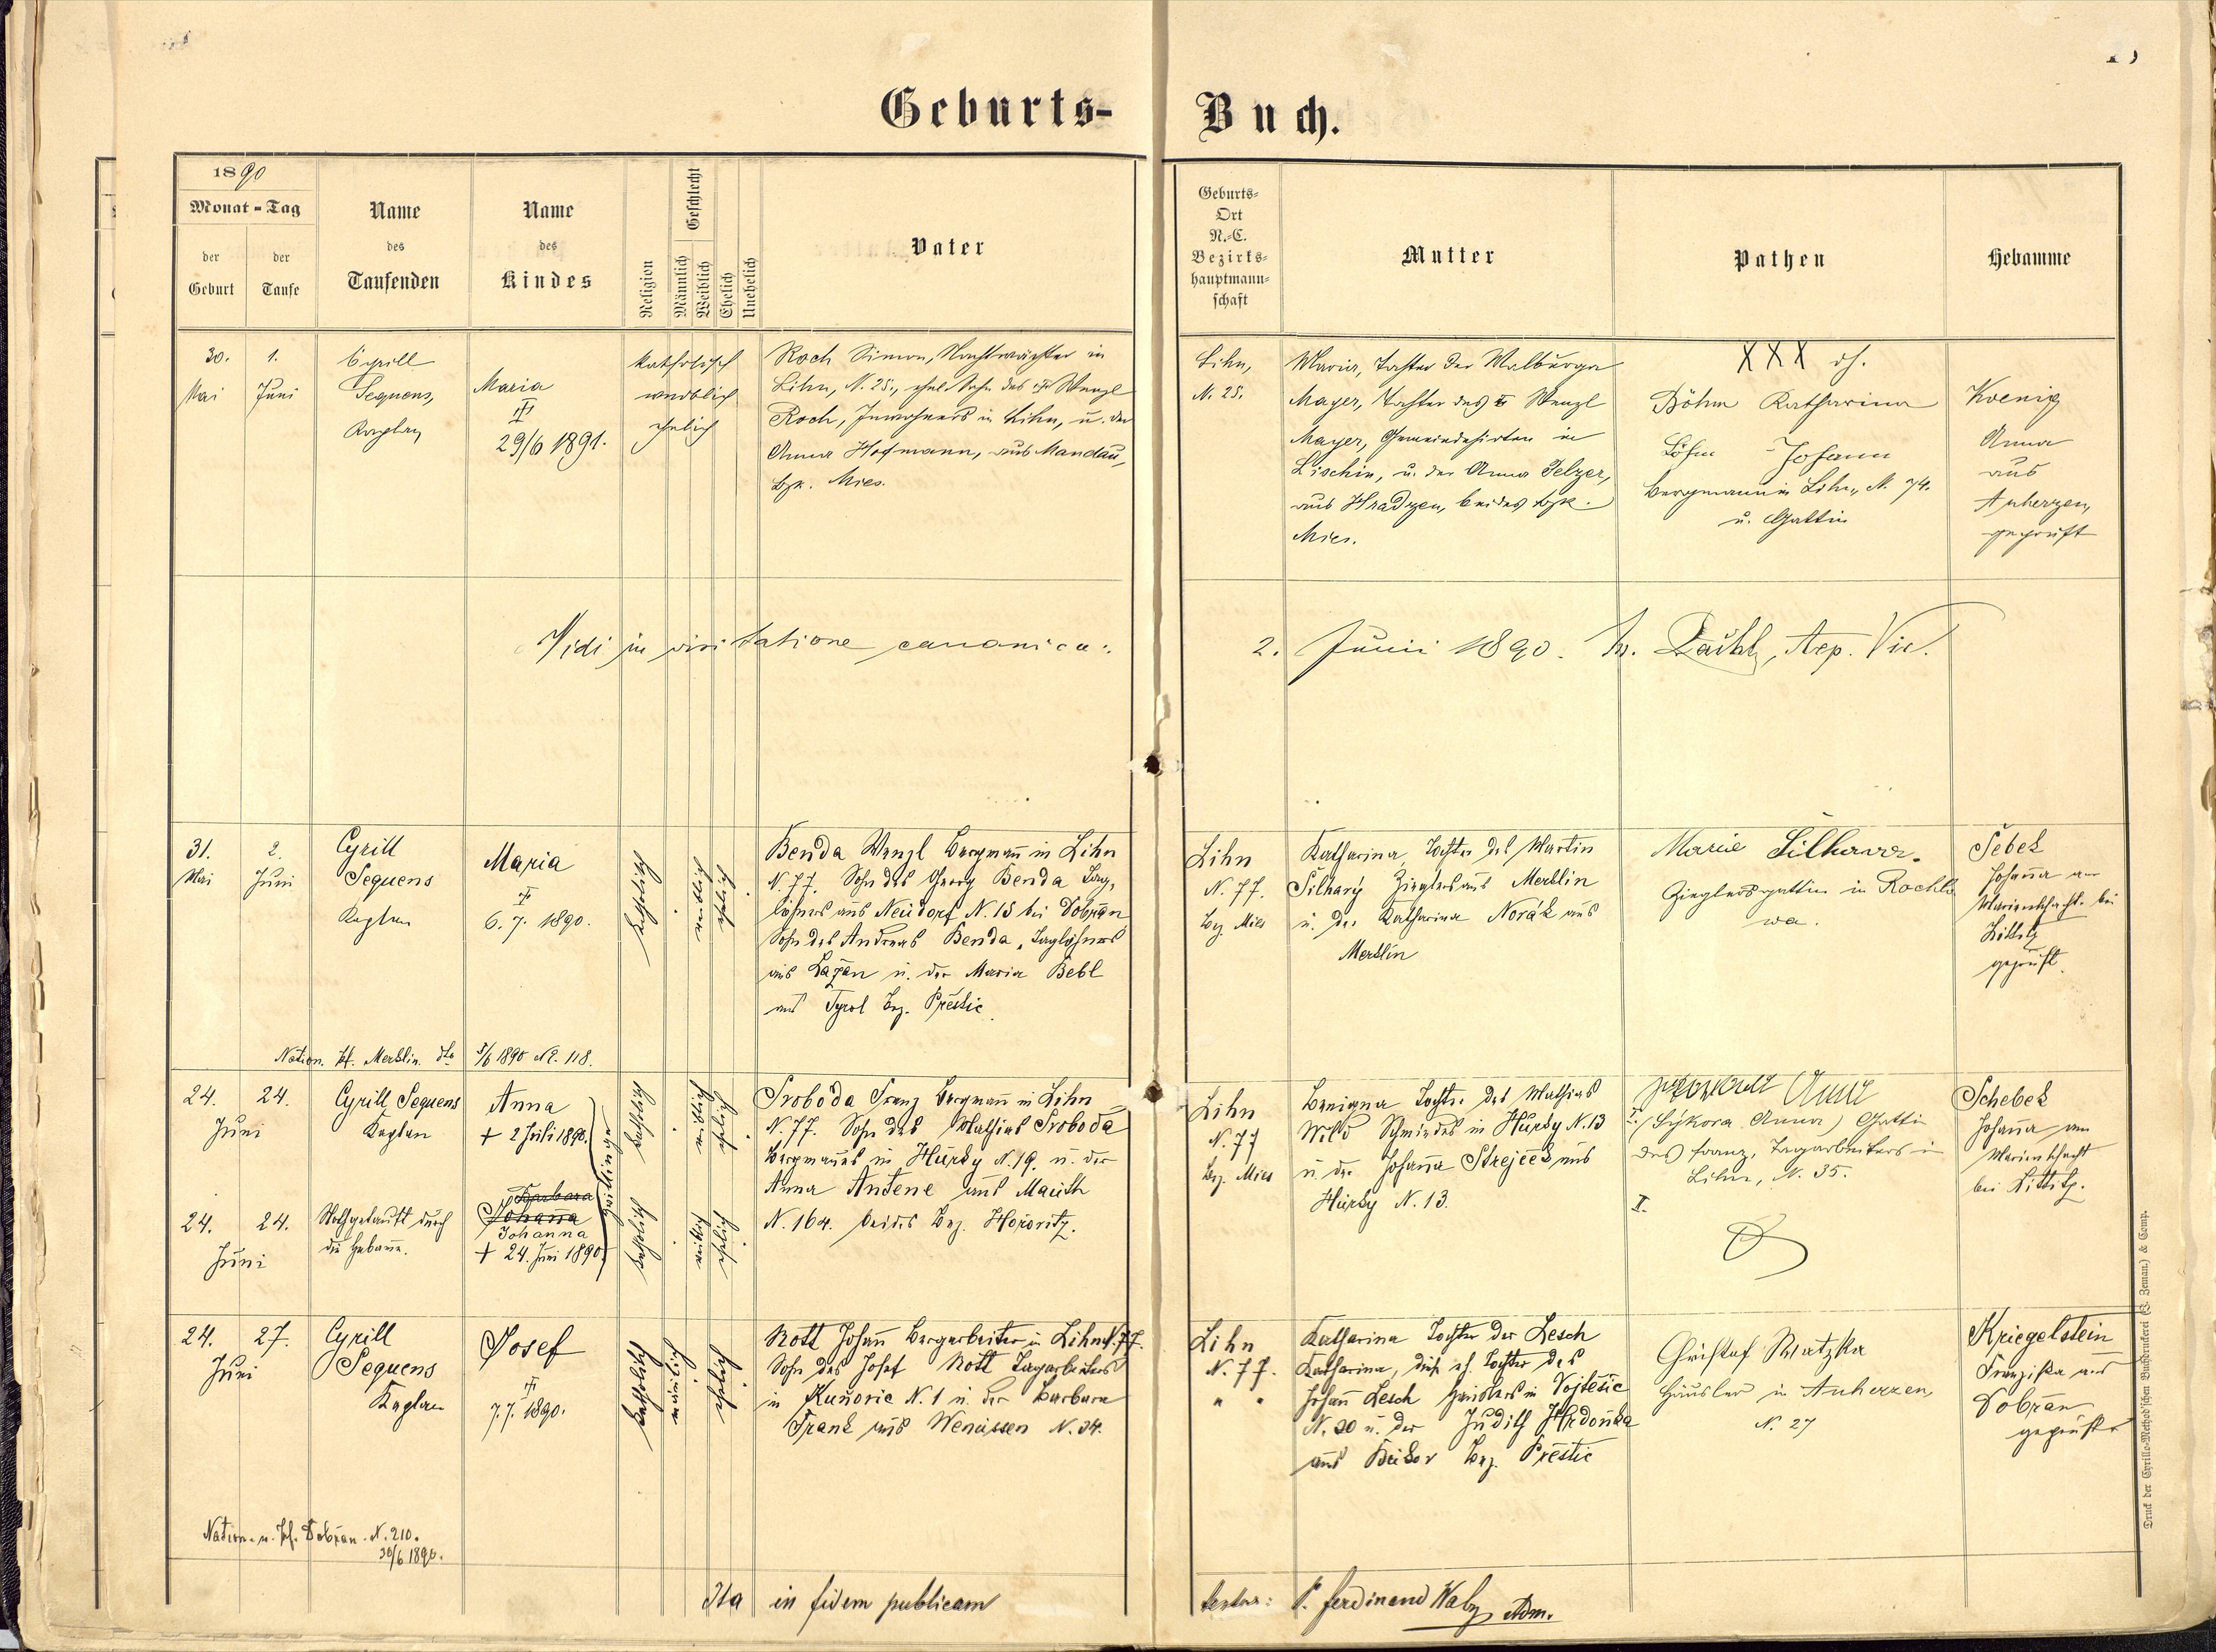 Geburts-Buch.
1890
Monat - Tag
der Geburt
der Taufe
Name des Taufenden
Name des Kindes
Religion
Geschlecht
Männlich
Weiblich
Ehelich
Unehelich
Vater
Geburts-
Ort
N.-C.
Bezirks-
hauptmann-
schaft
Mutter
Pathen
Hebamme
30. Mai
1. Juni
Cyrill
Sequens,
Kaplan
Maria
29/6 1891.
katholisch
weiblich
ehelich
Roch Simon, Nachtwächter in
Lihn, N. 25., ehel. Sohn des Wenzl
Roch, Inwohners in Lihn, u. der
Anna Hofmann, aus Mandau,
Bzk. Mies.
Lihn,
N. 25.
Maria, Tochter der Walburga
Mayer, Tochter des Wenzl
Mayer, Gemeindehirten in
Lischin, u. der Anna Selzer,
aus Hradzen, beides Bzk.
Mies.
XXX
Böhm Katharina
Böhm Johann
Bergmann in Lihn, N. 74.
u. Gattin
Koenig
Anna
aus
Auherzen,
geprüft
Vidi in visitatione canonica: 2. Junii 1890.
31. Mai
2. Juni
Cyrill
Sequens
Kaplan
Maria
6. 7. 1890.
katholisch
weiblich
ehelich
Benda Wenzl Bergmann in Lihn
N. 77. Sohn des Georg Benda Tag-
löhners aus Neudorf N. 15 bei Dobřan
Sohn des Andreas Benda, Taglöhners
aus Lažan u. der Maria Bebl
aus Tyrol Bez. Přestic
Lihn
N. 77.
Bez. Mies
Katharina, Tochter des Martin
Šilhavý Zieglers aus Merklin
u. der Katharina Novák aus
Merklin
Marie Šilhavá.
Zieglersgattin in Rochlo
wa.
Šebek
Johanna am
Marienschacht bei
Littitz
geprüft.
Nation. Pf. Merklin dto 5/6 1890 N. 118.
24. Juni
24.
Cyrill Sequens
Kaplan
Anna
+ 2 Juli 1890.
Zwillinge
katholisch
weiblich
ehelich
Svoboda Franz Bergmann in Lihn
N. 77. Sohn des Mathias Svoboda
Bergmanns in Hurky N. 19. u. der
Anna Antene aus Mauth
N. 164. beides Bez. Hořovitz.
Lihn
N. 77
Bez. Mies
Benigna Tochter des Mathias
Wild Schmiedes in Hurky N. 13
u. der Johanna Strejček aus
Hurky N. 13.
Anna
I. (Sýkora Anna) Gattin
des Franz, Tagarbeiters in
Lihn, N. 35.
II.
Schebek
Johanna am
Marienschacht
bei Littitz.
24. Juni
24.
Nothgetauft durch
die Hebamme.
Barbara
Johanna
Johanna
+ 24. Juni 1890
katholisch
weiblich
ehelich
24. Juni
27.
Cyrill
Sequens
Kaplan
Josef
7. 7. 1890.
katholisch
männlich
ehelich
Nott Johann Bergarbeiter in Lihn N. 77.
Sohn des Josef Nott Tagarbeiters
in Kuňovic N. 1 u. der Barbara
Frank aus Wenussen N. 34.
Lihn
N. 77.
" "
Katharina Tochter der Lesch
Katharina, diese eh. Tochter des
Johann Lesch Häuslers in Vojtěšic
N. 20 u. der Judith Hrdonka
aus Beikov Bez. Přestic
Christof Watzka
Häusler in Auherzen
N. 27
Kriegelstein
Franziska aus
Dobřan
geprüft
Nation. u. Pf. Dobřan. N. 210.
30/6 1890.
Ita in fidem publicam testor: P. Ferdinand Adm.
Druck der Cyrillo-Method'schen Buchdruckerei (J. Zeman.) & Comp.